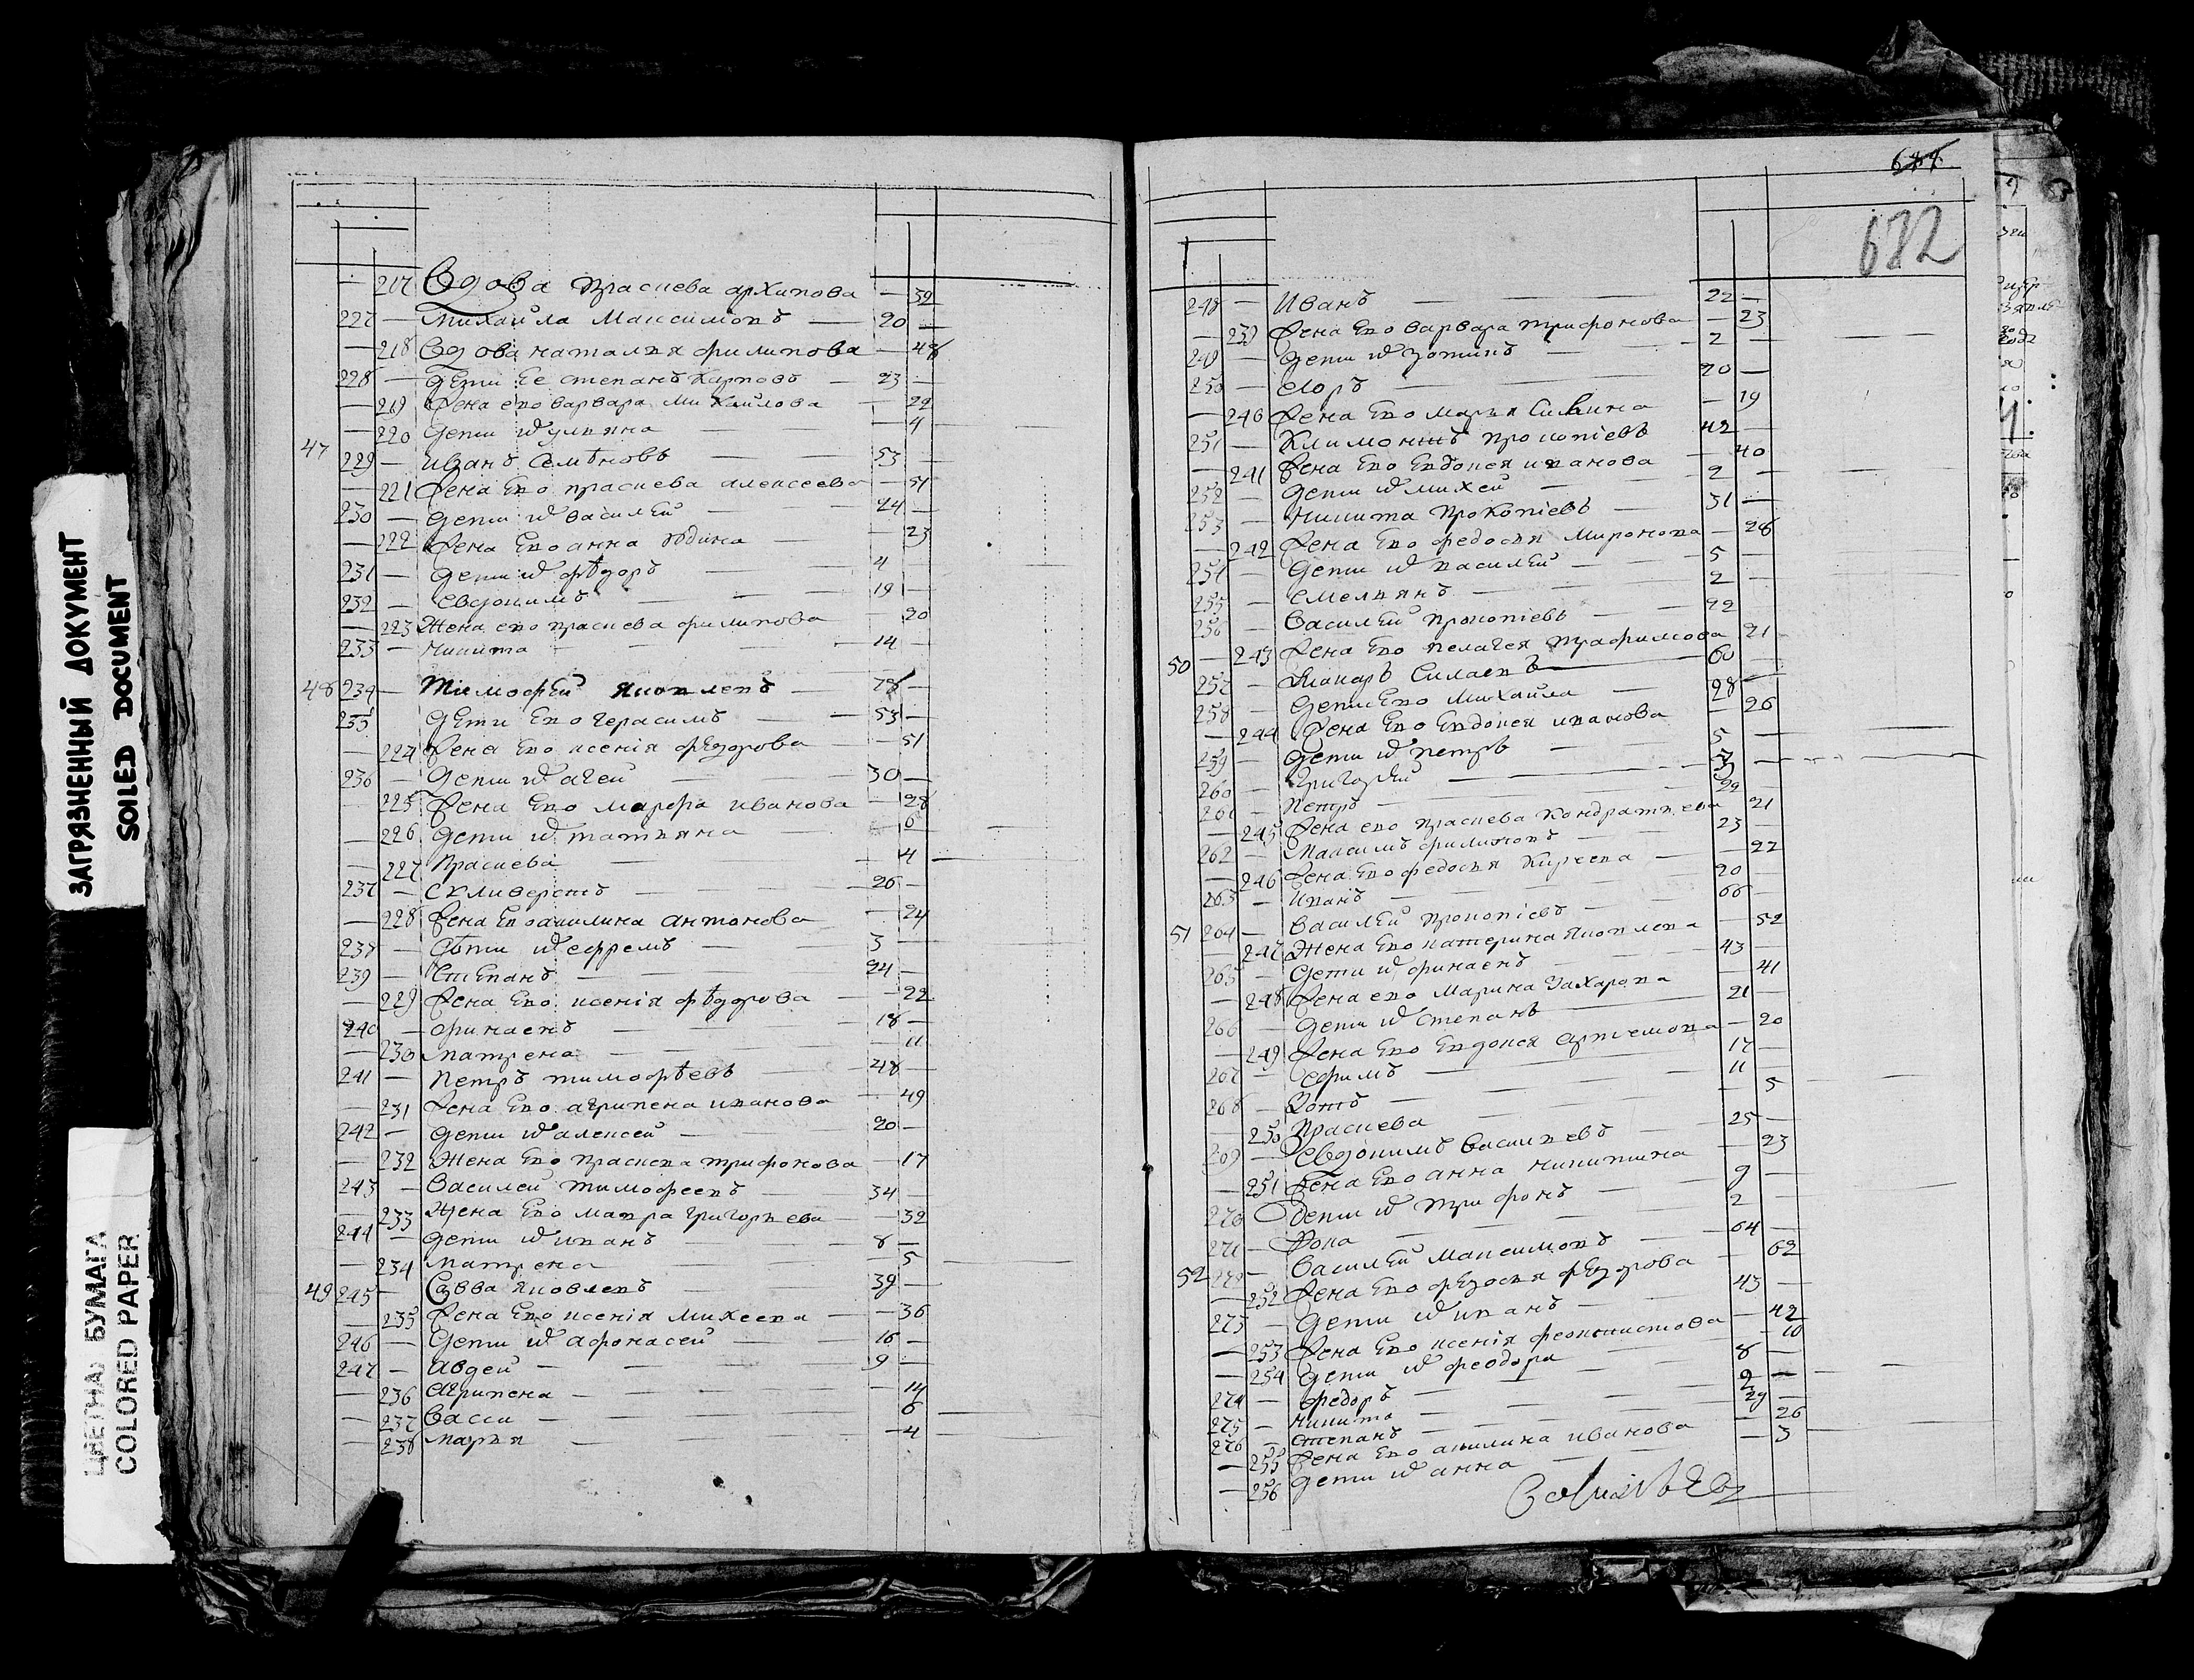 ЗАГРЯЗНЕННЫЙ ДОКУМЕНТ
SOILED DOCUMENT
ЦВЕТНАЯ БУМАГА
COLORED PAPER
— 217 Вдова Праскева архипова — 39
227 — Михайла Максимовъ — 20 —
— 218 Вдова наталья филипова — 48
228 — дети Ее степанъ Карповъ — 23 —
— 219 Жена ево варвара Михайлова — 22
— 220 дети их ульяна — 4
47 229 — Иванъ Семѣновъ — 53 —
— 221 Жена Ево праскева алексеева — 51
230 — дети их василей — 24 —
— 222 Жена Ево анна — 23
231 — дети их фѣдоръ — 4 —
232 — Евдокимъ — 19 —
— 223 Жена ево праскева филипова — 20
233 — никита — 14 —
48 234 — Тимофей яковлевъ — 78 —
235 дети Ево герасимъ — 53 —
— 224 Жена Ево ксенія фЕдорова — 51
236 — дети их агей — 30 —
— 225 Жена Ево марфа иванова — 28
— 226 дети их татьяна — 6
— 227 Праскева — 4
237 — Селиверстъ — 26 —
— 228 Жена Ево акилина антонова — 24
238 — дѣти их ефремъ — 3 —
239 — Степанъ — 24 —
— 229 Жена Ево ксенія фѣдорова — 22
240 — финаенъ — 18 —
— 230 матрена — 11
241 — Петръ тимофѣевъ — 48 —
— 231 Жена Ево агрипена иванова — 49
242 — дети их алексей — 20 —
— 232 Жена Ево Праскева трифонова — 17
243 — Василей тимофеевъ — 34 —
— 233 Жена Ево мавра григорьева — 32
244 — дети их иванъ — 8 —
— 234 матрена — 5
49 245 — Савва яковлевъ — 39 —
— 235 Жена Ево ксенія михеева — 36
246 — дети их афонасей — 16 —
247 — авдей — 9 —
— 236 агрипена — 14
— 237 васса — 6
— 238 марья — 4
682
248 — Иванъ — 22 —
— 239 Жена Ево варвара трифонова — 23
249 — дети их зотикъ — 2 —
250 — — 20 —
— 240 Жена Ево марья Силина — 19
251 — прокопіевъ — 42 —
— 241 Жена Ево Евдокея иванова — 40
252 — дети их михей — 2 —
253 — Никита Прокопіевъ — 31 —
— 242 Жена Ево федосья миронова — 28
254 — дети их василей — 5 —
255 — Емельянъ — 2 —
256 — Василей прокопіевъ — 22
— 243 Жена Ево пелагея трафимова 21
50 257 — Макаръ Силаевъ — 60 —
258 — дети Ево михайла — 28 —
— 244 Жена Ево Евдокея иванова — 26
259 — дети их петръ — 5 —
260 — григорей — 3 —
261 — Петръ — 22
— 245 Жена ево праскева кондратьева 21
262 — максимъ филиповъ — 23
— 246 Жена Ево федосья — 22
263 — Иванъ — 20
51 264 — василей прокопіевъ — 66 —
— 247 Жена Ево катерина яковлева — 52
265 — дети их финаенъ — 43 —
— 248 Жена ево марина захарова — 41
266 — дети их степанъ — 21 —
— 249 Жена Ево Евдокея артемова — 20
267 — Ефимъ — 17 —
268 — Зотъ — 11
— 250 Праскева — 5
269 — Евдокимъ васильевъ — 25 —
— 251 Жена Ево анна никитина — 23
270 — дети их трифонъ — 9 —
271 — фока — 2
52 272 — василей максимовъ — 64 —
— 252 Жена Ево фЕдосья фЕдорова — 62
273 — дети их иванъ — 43 —
— 253 Жена Ево ксенія феоктистова — 42
— 254 дети их феодора — 10
274 — федоръ — 8 —
275 — никита — 2 —
276 — степанъ — 29 —
— 255 Жена Ево акилина иванова — 26
— 256 дети их анна — 3